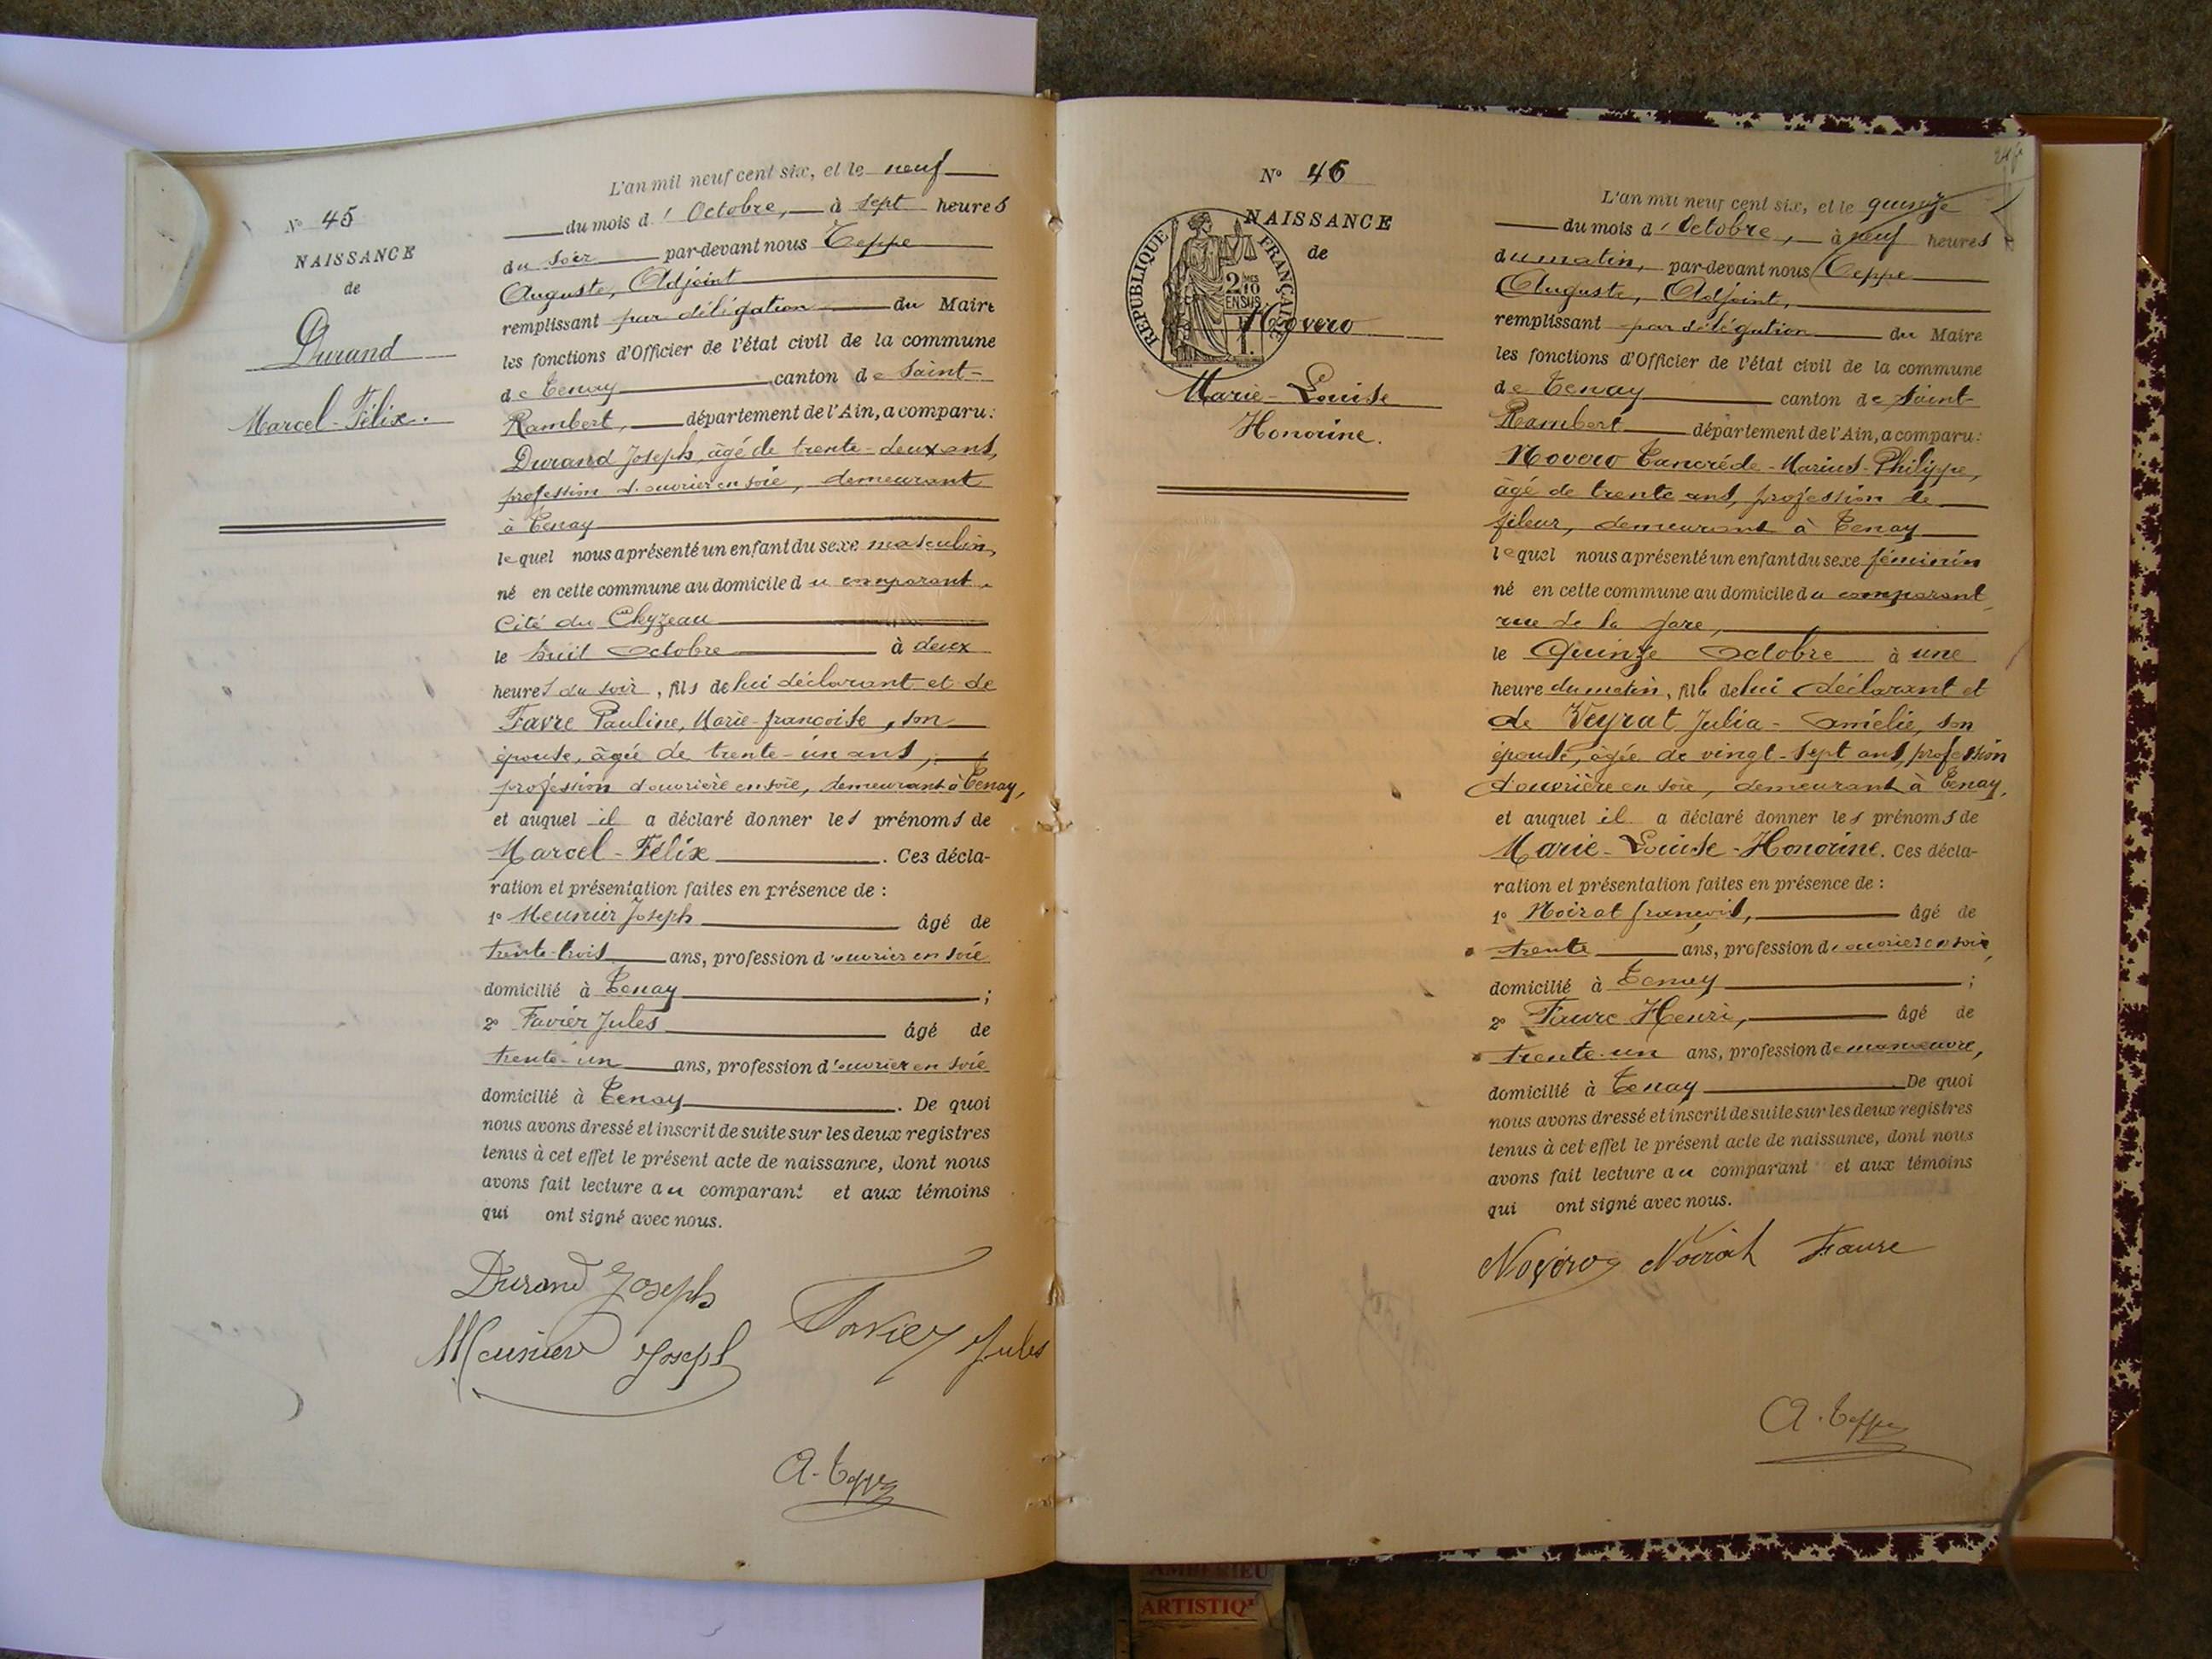 N° 45
NAISSANCE
de
Durand
Marcel-Félix.
L'an mil neuf cent six, et le neuf
du mois d' Octobre, à sept heures
du soir par-devant nous Teppe
Auguste, Adjoint
remplissant par délégation du Maire
les fonctions d'Officier de l'état civil de la commune
de Tenay canton de Saint-
Rambert, département de l'Ain, a comparu:
Durand Joseph, âgé de trente-deux ans,
profession d'ouvrier en soie, demeurant
à Tenay
lequel nous a présenté un enfant du sexe masculin,
né en cette commune au domicile du comparant.
Cité du Chyzeau
le huit Octobre à deux
heures du soir, fils de lui déclarant et de
Favre Pauline, Marie-françoise, son
épouse, âgée de trente-un ans,
profession d'ouvrière en soie, demeurant à Tenay,
et auquel il a déclaré donner les prénoms de
Marcel-Félix. Ces décla-
ration et présentation faites en présence de :
1° Meunier Joseph âgé de
trente-trois ans, profession d'ouvrier en soie
domicilié à Tenay ;
2° Favier Jules âgé de
trente-un ans, profession d'ouvrier en soie
domicilié à Tenay. De quoi
nous avons dressé et inscrit de suite sur les deux registres
tenus à cet effet le présent acte de naissance, dont nous
avons fait lecture au comparant et aux témoins
qui ont signé avec nous.
Durand Joseph
Meunier Joseph Favier Jules
A. Teppe
N° 46
NAISSANCE
de
RÉPUBLIQUE FRANÇAISE
2 MES
10
EN SUS.
Novero
Marie-Louise
Honorine.
L'an mil neuf cent six, et le quinze
du mois d'Octobre, à neuf heures
du matin, par-devant nous Teppe
Auguste, Adjoint,
remplissant par délégation du Maire
les fonctions d'Officier de l'état civil de la commune
de Tenay canton de Saint-
Rambert département de l'Ain, a comparu:
Novero Tancréde-Marius-Philippe,
âgé de trente ans, profession de
fileur, demeurant à Tenay
lequel nous a présenté un enfant du sexe féminin
né en cette commune au domicile du comparant,
rue de la gare,
le Quinze Octobre à une
heure du matin, fille de lui déclarant et
de Veyrat Julia-Amélie, son
épouse, âgée de vingt-sept ans, profession
d'ouvrière en soie, demeurant à Tenay,
et auquel il a déclaré donner les prénoms de
Marie-Louise-Honorine. Ces décla-
ration et présentation faites en présence de :
1° Noirat françois, âgé de
trente ans, profession d'ouvrier en soie,
domicilié à Tenay ;
2° Faure Henri, âgé de
trente-un ans, profession de manœuvre,
domicilié à Tenay De quoi
nous avons dressé et inscrit de suite sur les deux registres
tenus à cet effet le présent acte de naissance, dont nous
avons fait lecture au comparant et aux témoins
qui ont signé avec nous.
Novéro Noirat Faure
A. Teppe
AMBERIEU
ARTISTIQ